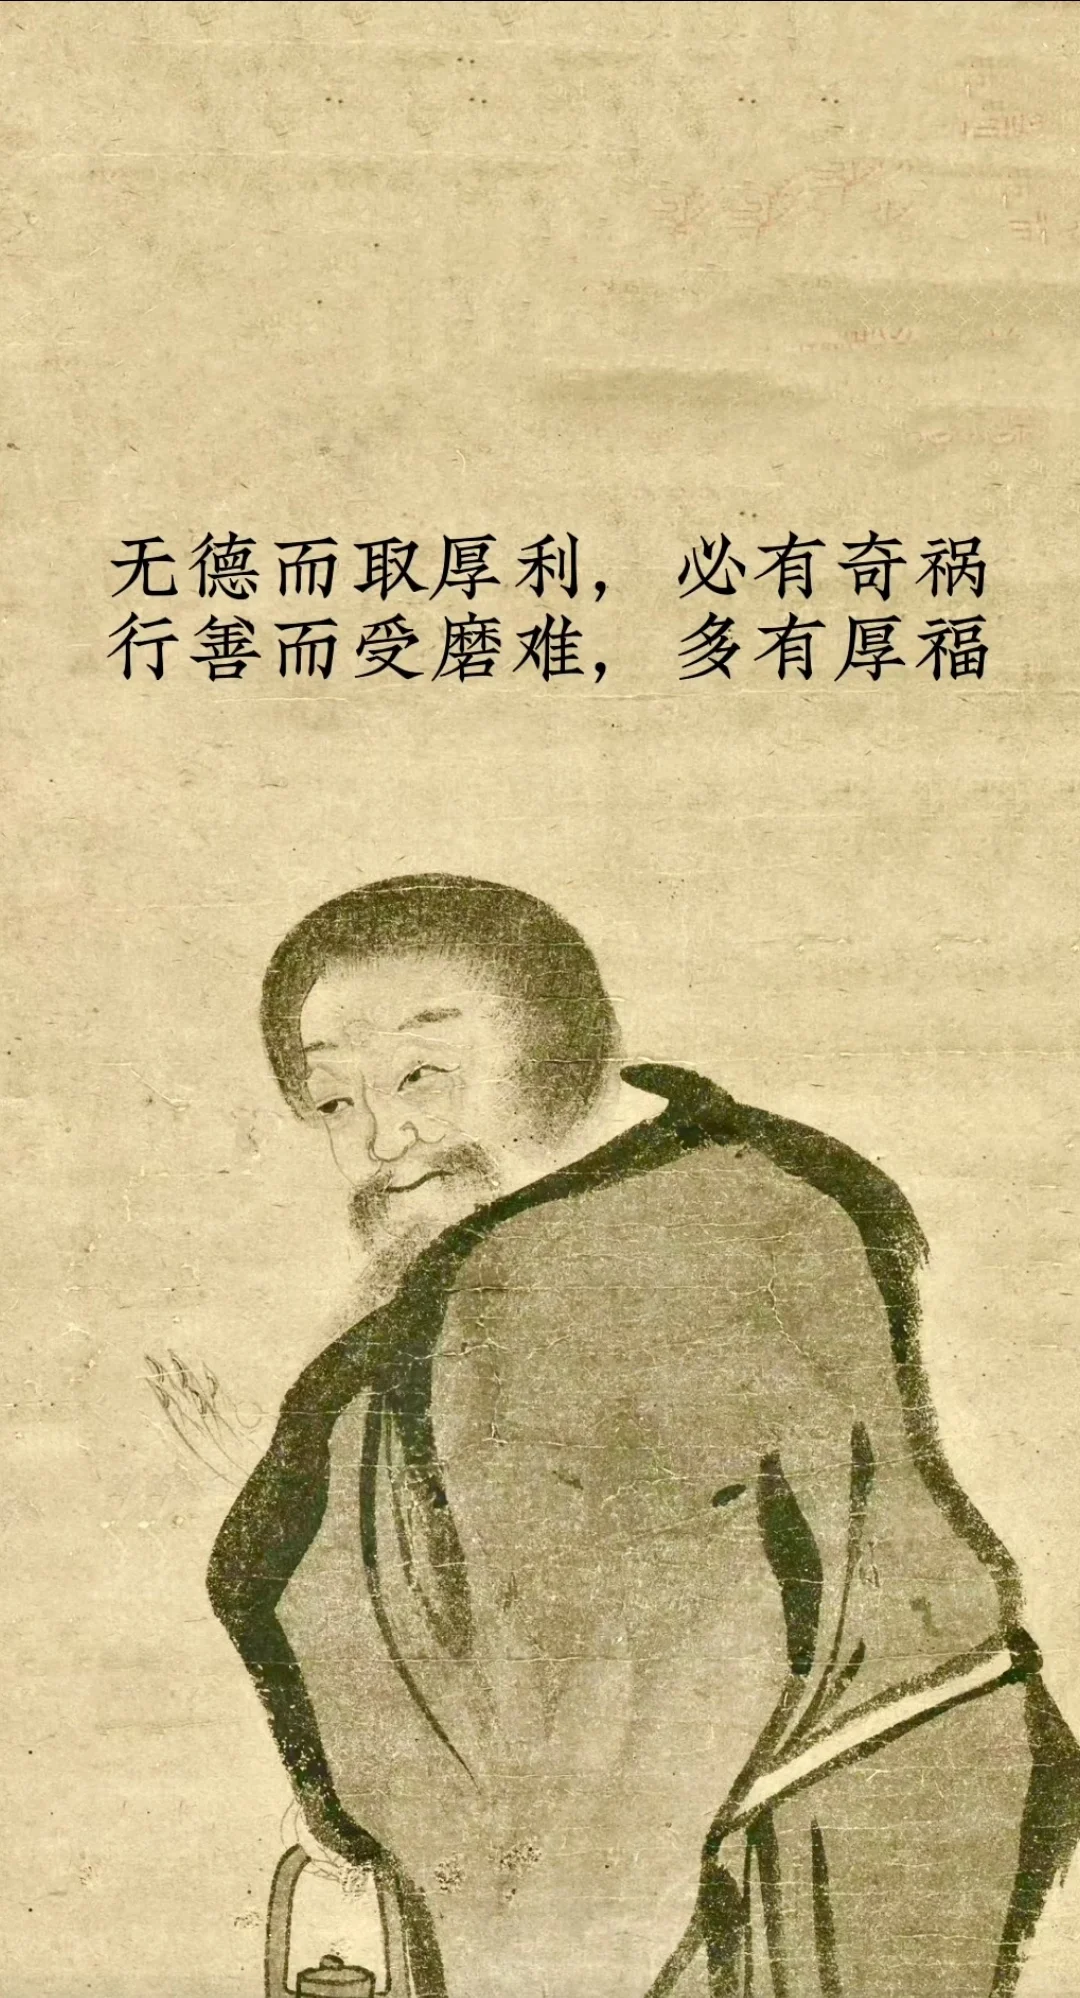 无德而取厚利，必有奇祸
行善而受磨难，多有厚福